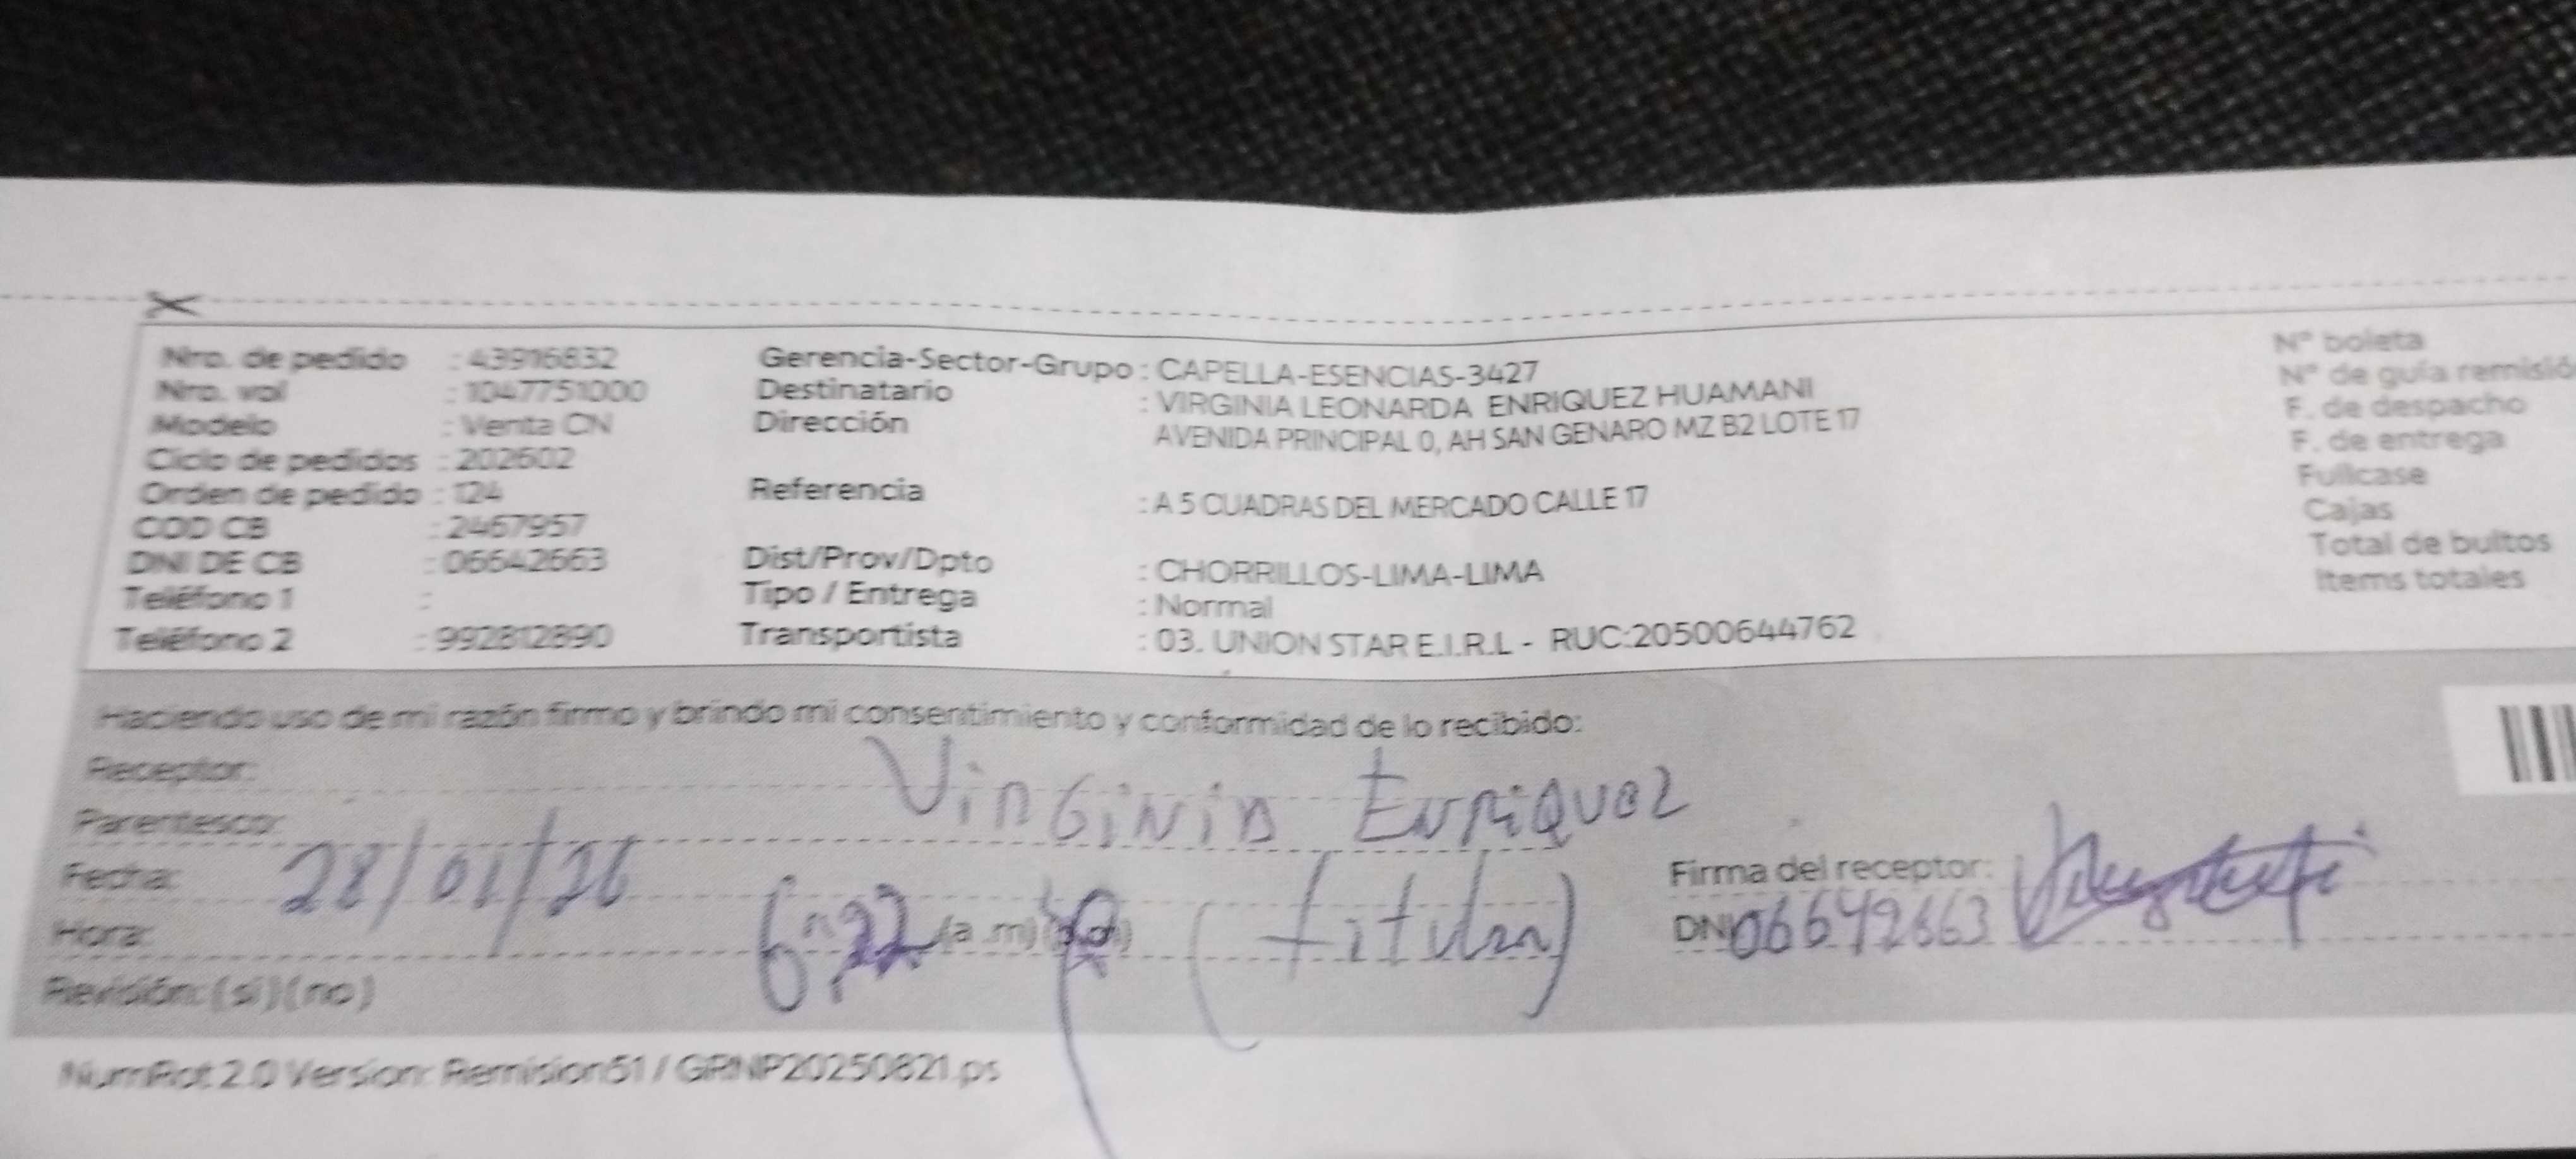 Nro. de pedido : 43916832
Nro. vol : 1047751000
Modelo : Venta CN
Ciclo de pedidos : 202602
Orden de pedido : 124
COD CB : 2467957
DNI DE CB : 06642663
Teléfono 1 :
Teléfono 2 : 992812890
Gerencia-Sector-Grupo : CAPELLA-ESENCIAS-3427
Destinatario : VIRGINIA LEONARDA ENRIQUEZ HUAMANI
Dirección AVENIDA PRINCIPAL 0, AH SAN GENARO MZ B2 LOTE 17
Referencia : A 5 CUADRAS DEL MERCADO CALLE 17
Dist/Prov/Dpto : CHORRILLOS-LIMA-LIMA
Tipo / Entrega : Normal
Transportista : 03. UNION STAR E.I.R.L - RUC:20500644762
N° boleta
N° de guía remisió
F. de despacho
F. de entrega
Fullcase
Cajas
Total de bultos
Items totales
Haciendo uso de mi razón firmo y brindo mi consentimiento y conformidad de lo recibido:
Receptor: Virginia Enriquez
Parentesco: (titular)
Fecha: 28/01/26
Hora: (a .m)
Revisión: (si) (no)
Firma del receptor:
DNI 06642663
NumRot 2.0 Version: Remision51 / GRNP20250821.ps